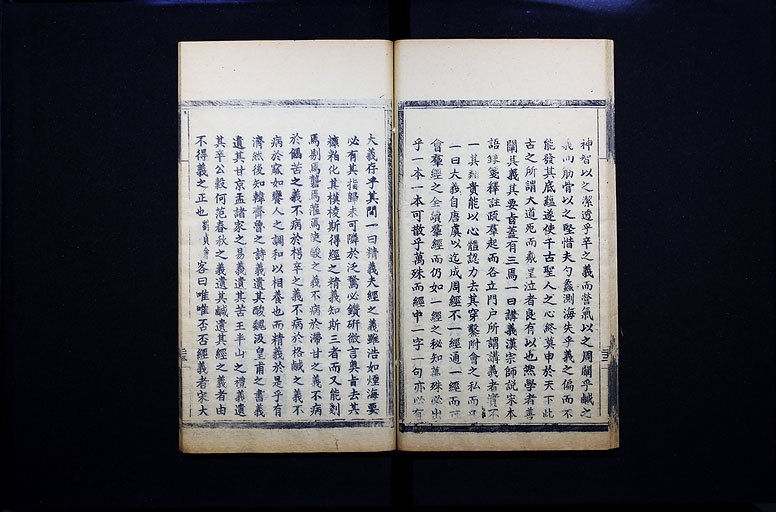 神智以之潔透乎辛之義而營氣以之周關乎鹹之
義而筋骨以之堅惜夫勺蠡測海失乎義之偏而不
能發其底蘊遂使千古聖人之心終莫申於天下此
古之所謂大道死而羲皇泣者良有以也然學者尋
闡其義其要旨蓋有三焉一曰講義漢宗師說宋本
語錄箋釋註疏羣起而各立門户所謂講義者實不
一其歸貴能以心體認力去其穿鑿附會之私而
一曰大義自唐虞以迄成周經不一經通一經而
會羣經之全讀羣經而仍如一經之秘知萬殊必出
乎一本一本可散乎萬殊而經中一字一句亦必有
大義存乎其間一曰精義夫經之義雖浩如煙海要
必有其指歸未可隣於泛騖必鑽研微言奧旨去其
糠粕化其模棱斯得經之精義知斯三者而又能剖
焉剔焉醫焉蘊焉使酸之義不病於滯甘之義不病
於饜苦之義不病於拐辛之義不病於格鹹之義不
病於寂如饔人之調和以相養也而精義於是乎有
濟然後知韓齊魯之詩義遺其酸魏汲皇甫之書義
遺其甘京孟諸家之易義遺其苦王半山之禮義遺
其辛公穀何范春秋之義遺其鹹遺其經之義者由
不得義之正也 客曰唯唯否否經義者宋大